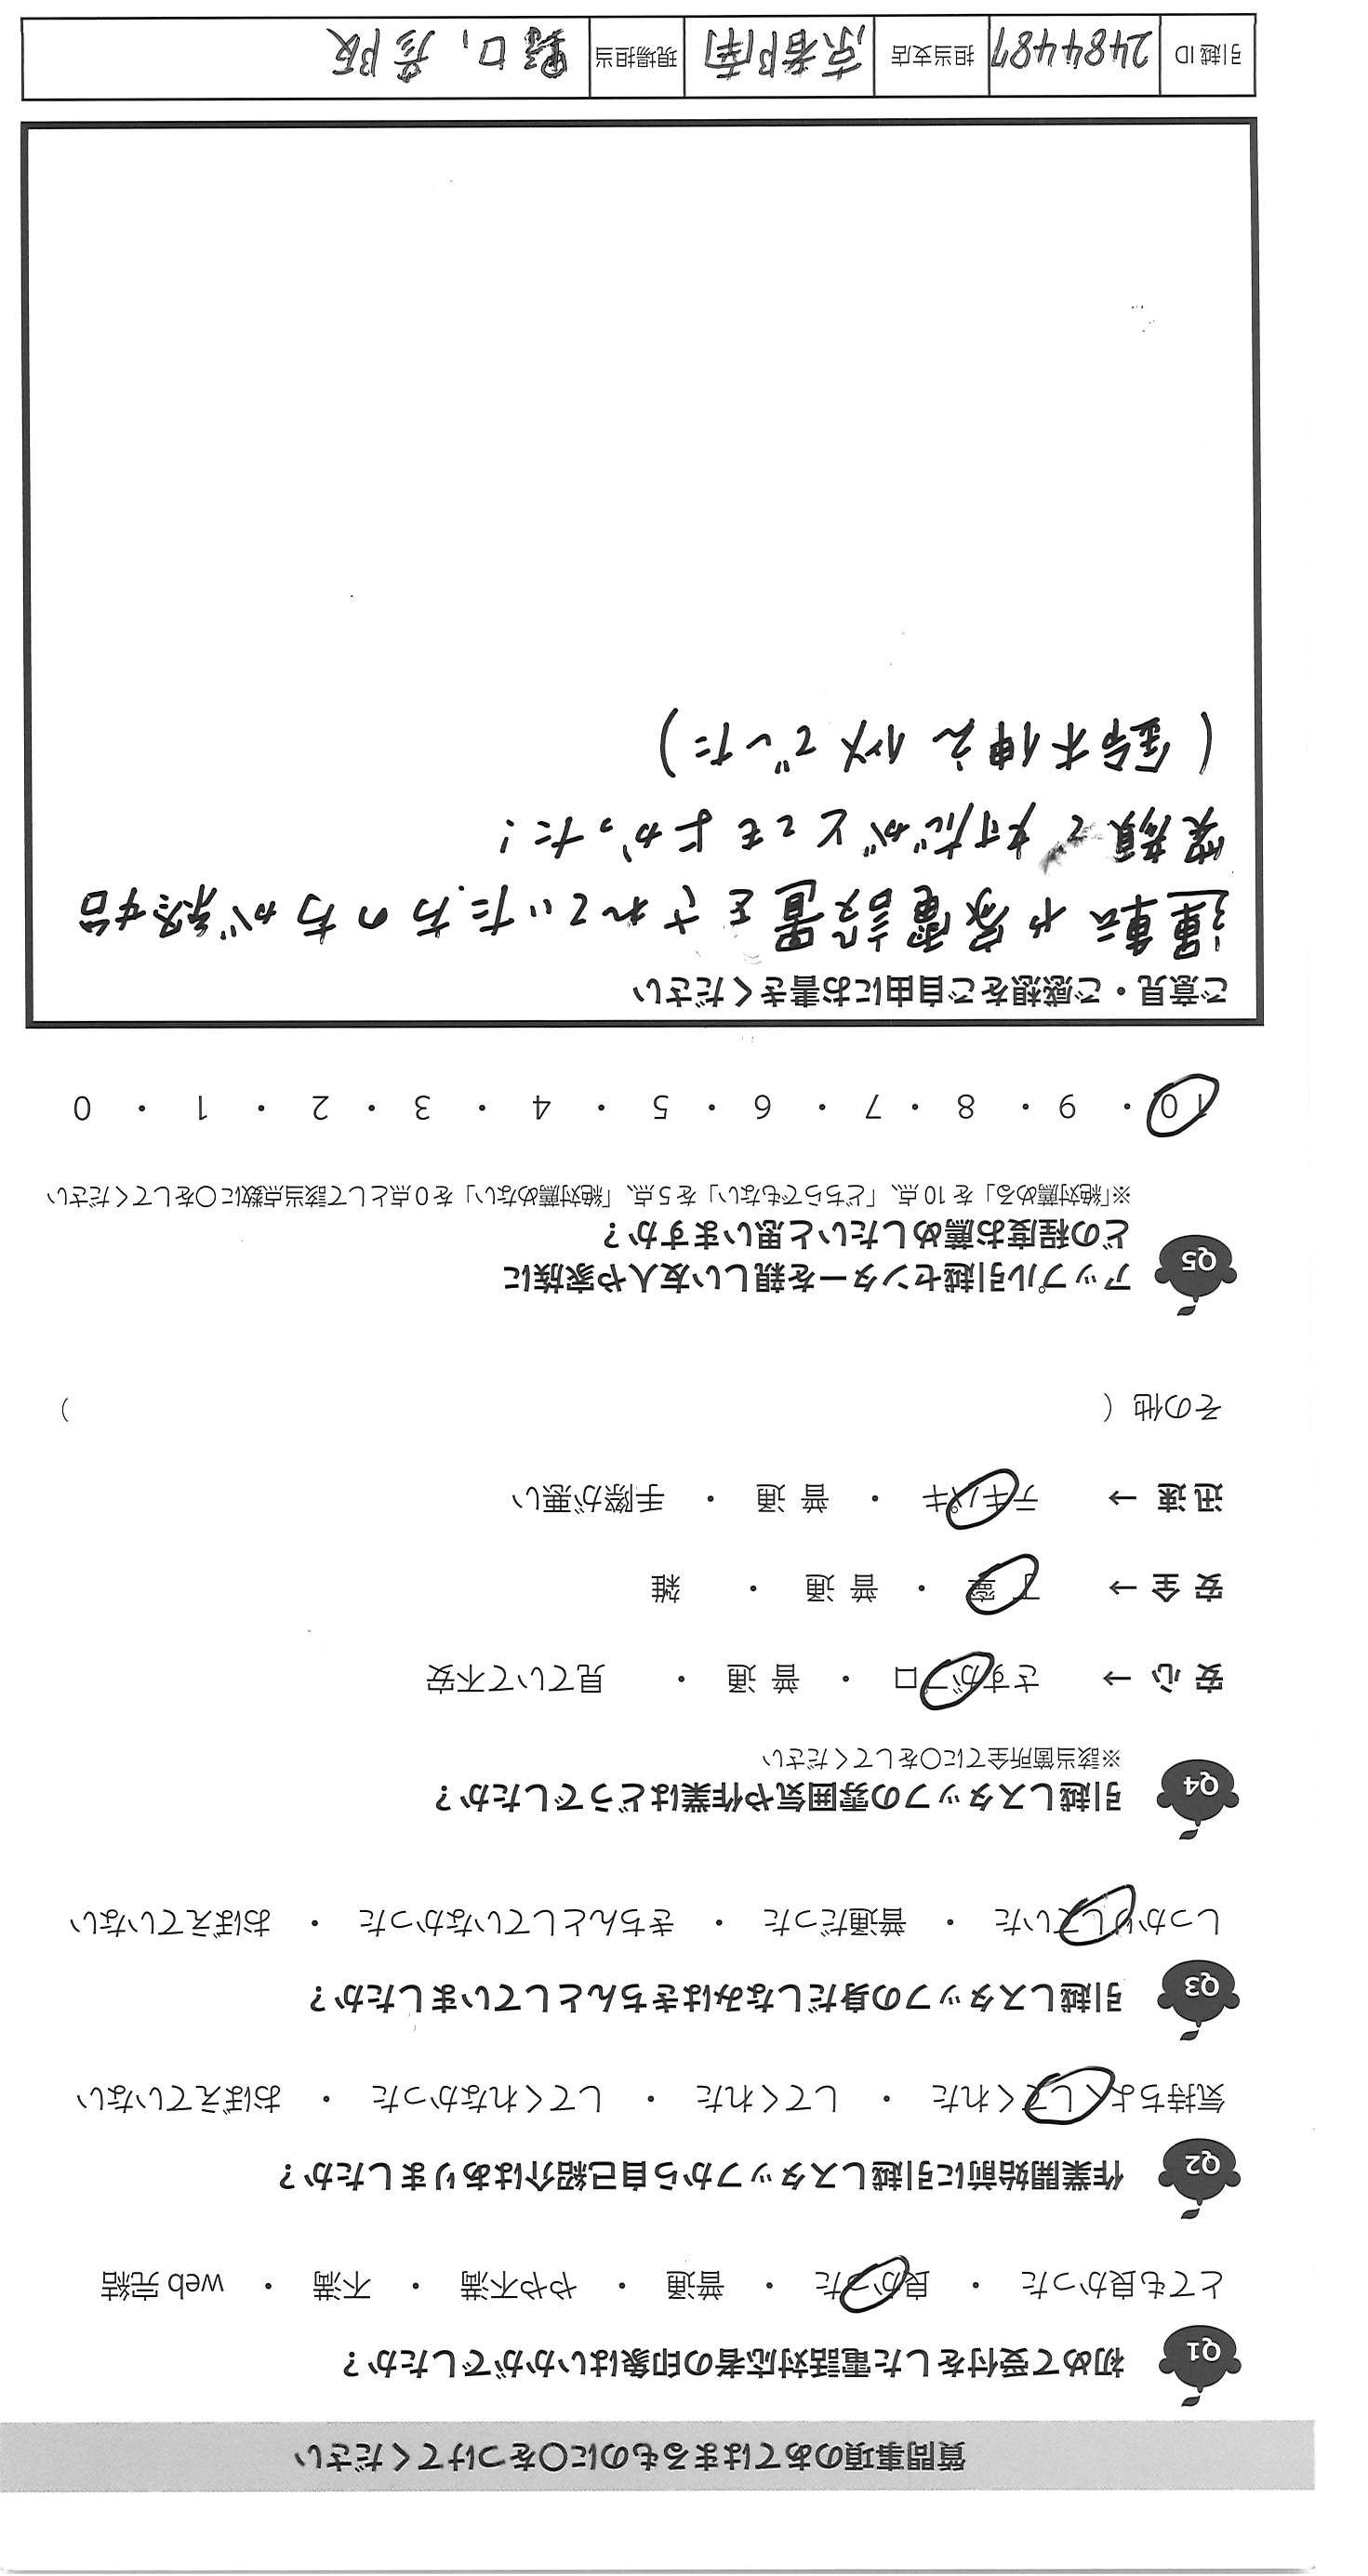 質問事項のあてはまるものに〇をつけてください
Q1 初めて受付をした電話対応者の印象はいかがでしたか？
とても良かった ・ 良かった ・ 普通 ・ やや不満 ・ 不満 ・ web 完結
Q2 作業開始前に引越しスタッフから自己紹介はありましたか？
気持ちよくしてくれた ・ してくれた ・ してくれなかった ・ おぼえていない
Q3 引越しスタッフの身だしなみはきちんとしていましたか？
しっかりしていた ・ 普通だった ・ きちんとしていなかった ・ おぼえていない
Q4 引越しスタッフの雰囲気や作業はどうでしたか？
※該当箇所全てに〇をしてください
安 心 → さすがプロ ・ 普 通 ・ 見ていて不安
安 全 → 丁 寧 ・ 普 通 ・ 雑
迅 速 → テキパキ ・ 普 通 ・ 手際が悪い
その他 （ ）
Q5 アップル引越センターを親しい友人や家族に
どの程度お薦めしたいと思いますか？
※「絶対薦める」を 10 点、「どちらでもない」を 5 点、「絶対薦めない」を 0 点として該当点数に〇をしてください
10 ・ 9 ・ 8 ・ 7 ・ 6 ・ 5 ・ 4 ・ 3 ・ 2 ・ 1 ・ 0
ご意見・ご感想をご自由にお書きください
運転や家電設置をされていた方の方が終始
笑顔で 対応がとてもよかった！
(鈴木伸之似でした)
引越 ID 2484487 担当支店 京都南 現場担当 野口,